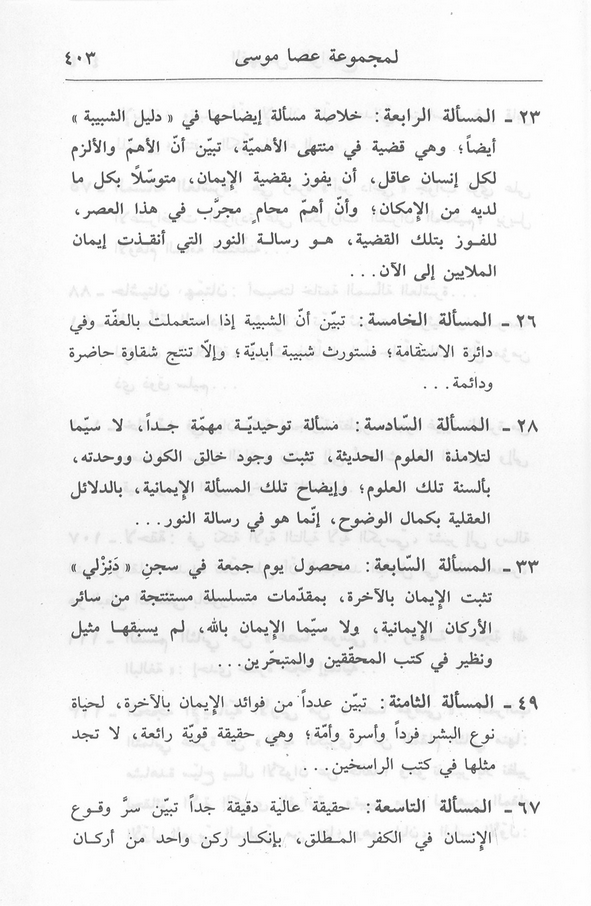 لمجموعة عصا موسى ٤٠٣
٢٣ ـ المسألة الرابعة: خلاصة مسألة إيضاحها في «دليل الشبيبة»
أيضاً؛ وهي قضية في منتهى الأهميّة، تبيّن أنّ الأهمّ والألزم
لكل إنسان عاقل، أن يفوز بقضية الإيمان، متوسّلًا بكل ما
لديه من الإمكان؛ وأنّ أهمّ محامٍ مجرَّب في هذا العصر،
للفوز بتلك القضية، هو رسالة النور التي أنقذت إيمان
الملايين إلى الآن...
٢٦ ـ المسألة الخامسة: تبيّن أنّ الشبيبة إذا استعملت بالعفّة وفي
دائرة الاستقامة؛ فستورث شبيبة أبديّة؛ وإلّا تنتج شقاوة حاضرة
ودائمة...
٢٨ ـ المسألة السّادسة: مسألة توحيديّـة مهمّة جـداً، لا سيّما
لتلامذة العلوم الحديثة، تثبت وجود خالق الكون ووحدته،
بألسنة تلك العلوم؛ وإيضاح تلك المسألة الإيمانية، بالدلائل
العقلية بكمال الوضوح، إنّما هو في رسالة النور...
٣٣ ـ المسألة السّابعة: محصول يوم جمعة في سجن «دَنِزْلي»
تثبت الإيمان بالآخرة، بمقدّمات متسلسلة مستنتجة من سائر
الأركان الإيمانية، ولا سيّما الإيمان بالله، لم يسبقهـا مثيل
ونظير في كتب المحقّقين والمتبحّرين...
٤٩ ـ المسألة الثامنة: تبيّن عدداً من فوائد الإيمان بالآخرة، لحياة
نوع البشر فرداً وأسرة وأمّة؛ وهي حقيقة قويّة رائعة، لا تجد
مثلها في كتب الراسخين...
٦٧ ـ المسألة التاسعة: حقيقة عالية دقيقة جداً تبيّن سرَّ وقـوع
الإنسان في الكفر المـطلق، بـإنكار ركن واحد من أركان